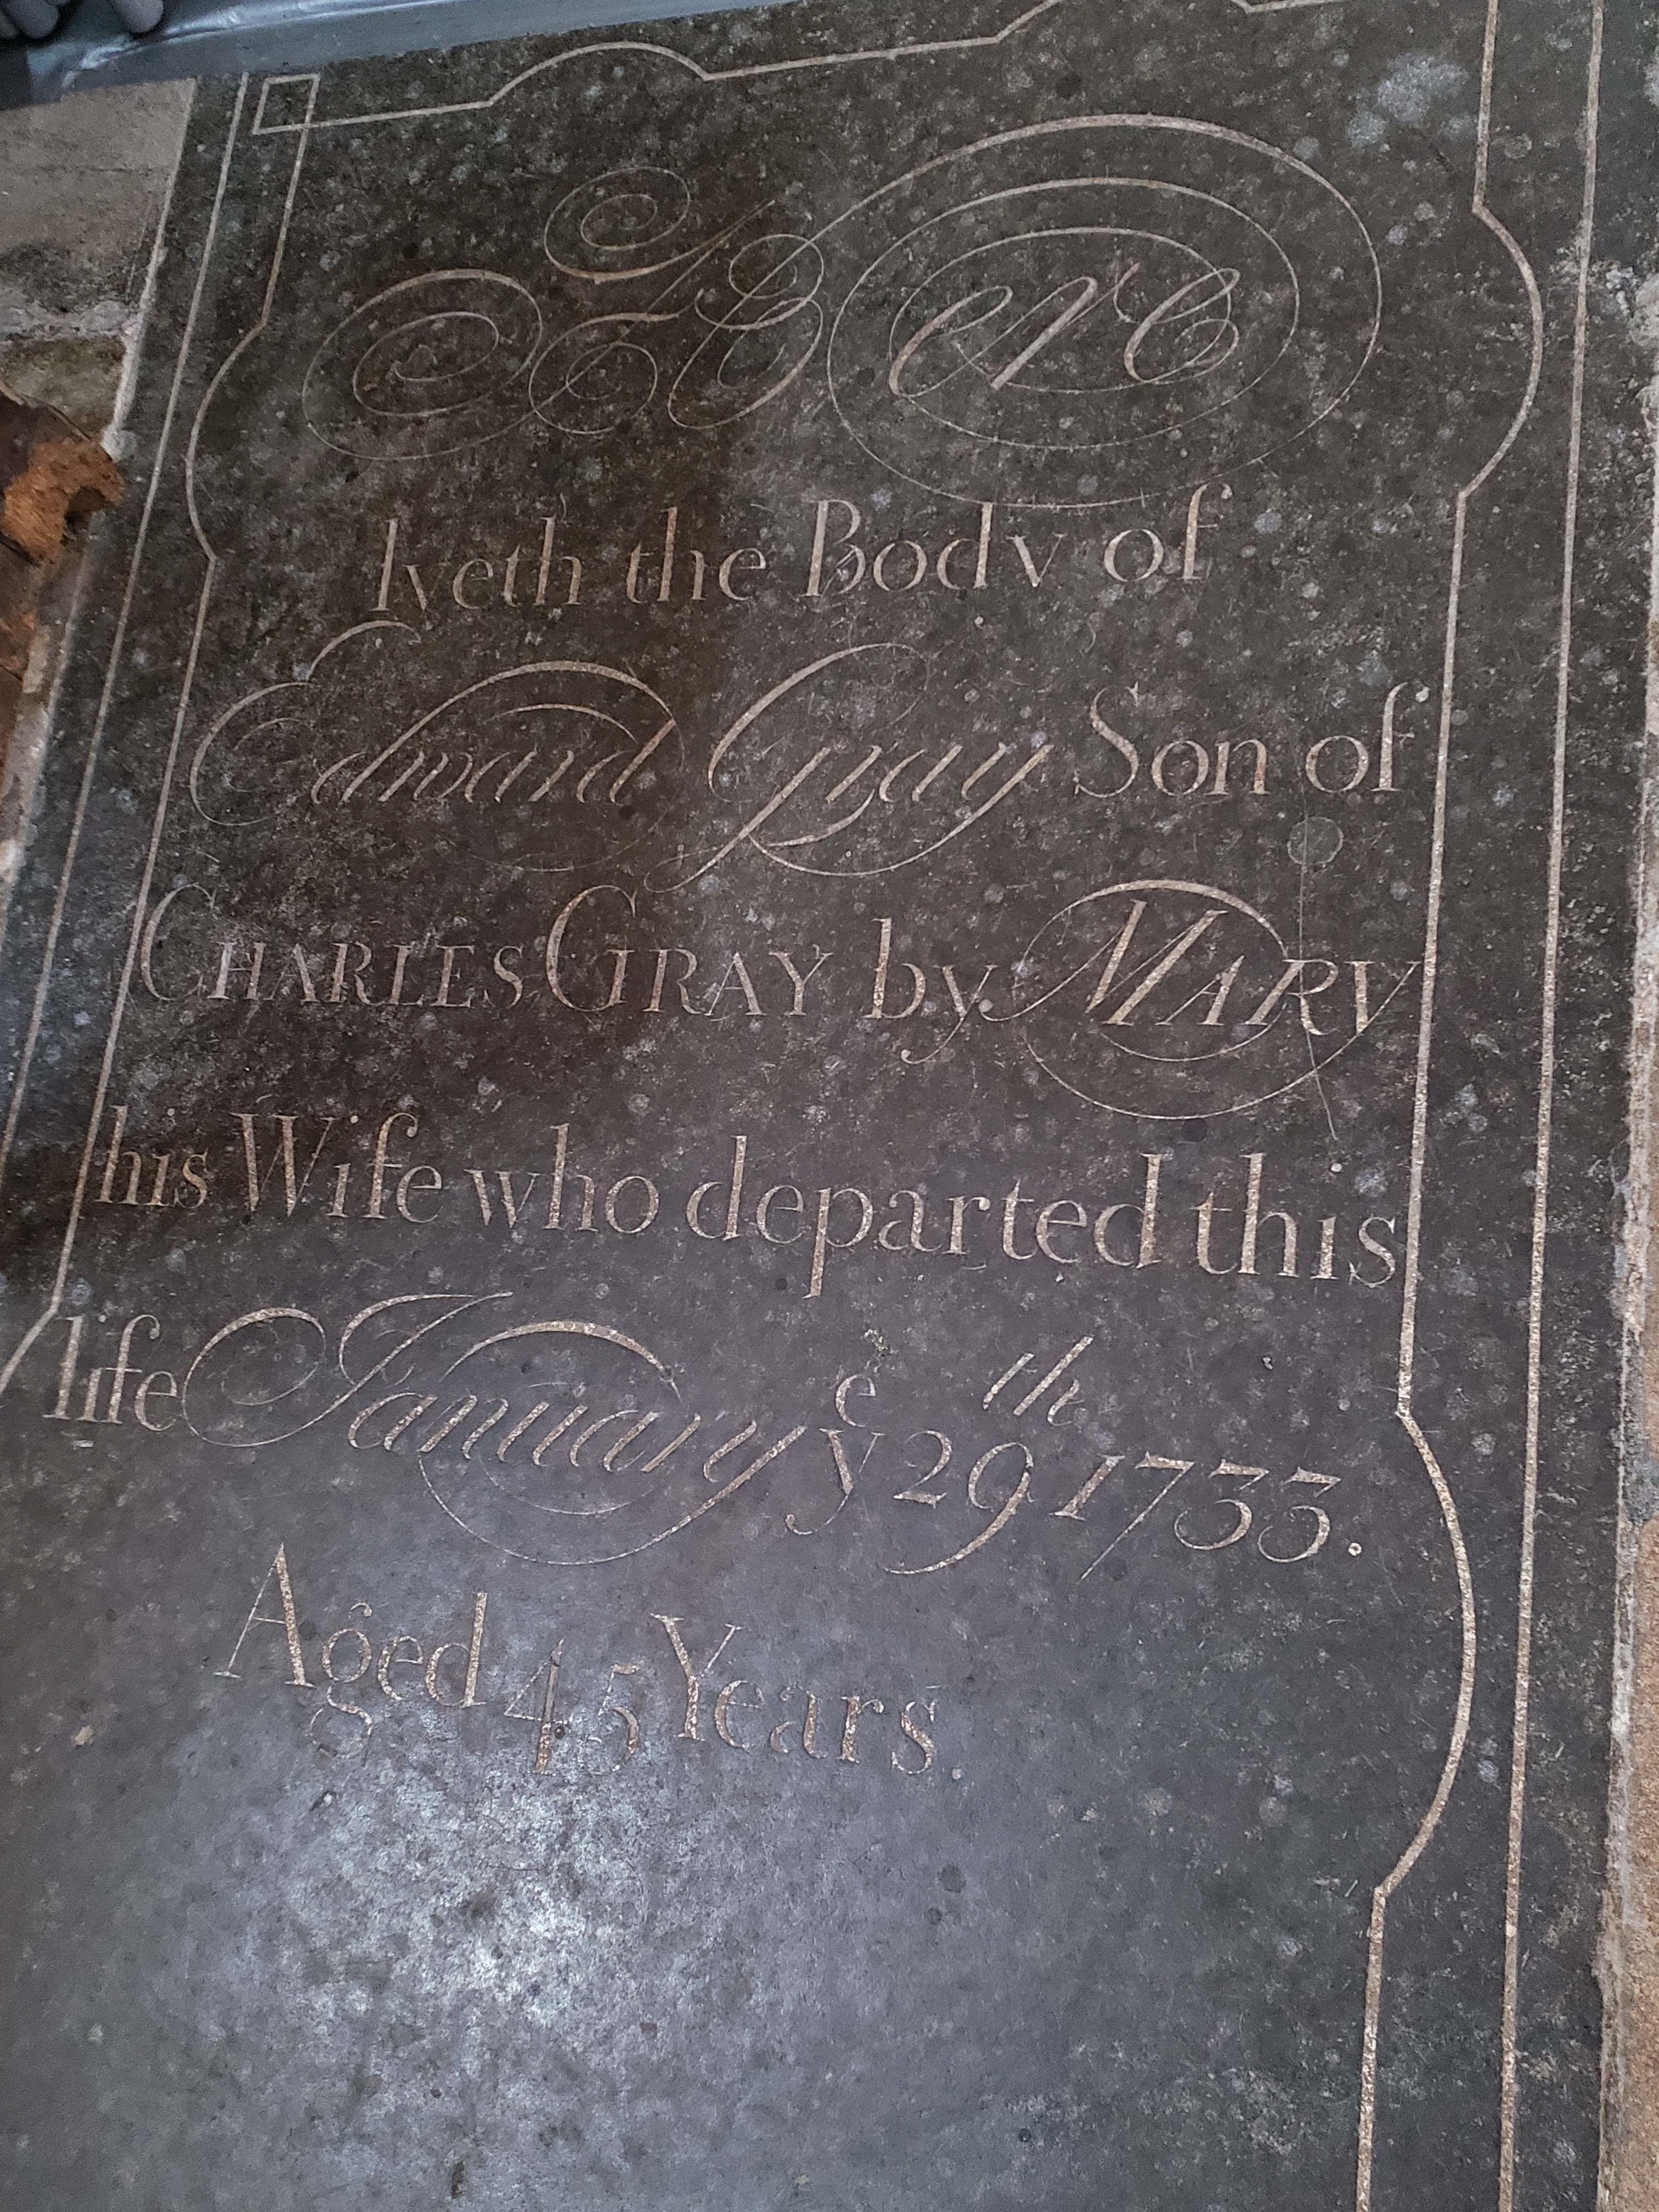 Here
lyeth the Body of
Edward Gray Son of
CHARLES GRAY by MARY
his Wife who departed this
life January yᵉ 29ᵗʰ 1733.
Aged 45 Years.